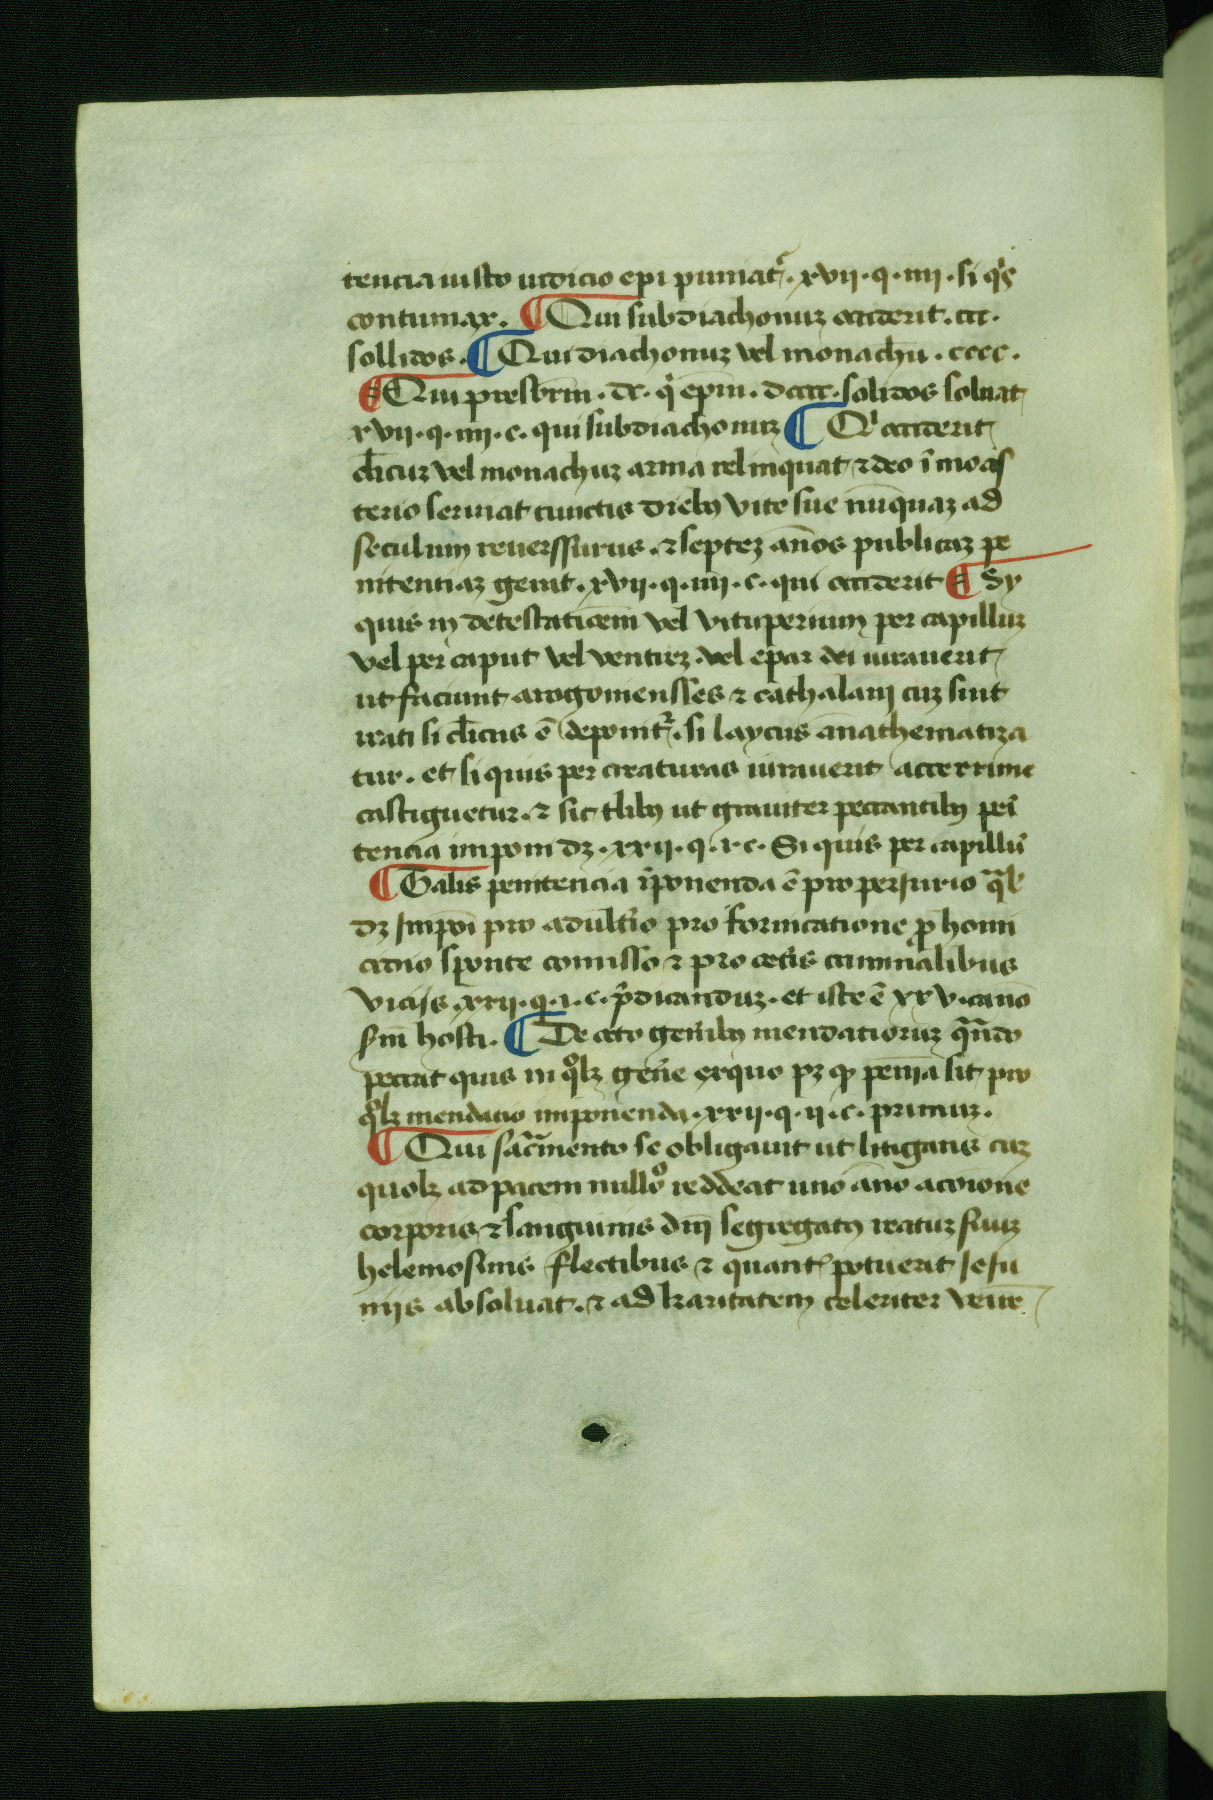 tencia iusto iudicio epi puniat᷑. xvii. q. iiii. si q̇s
contumax. ¶ Qui subdiachonuz occiderit. ccc.
sollidos. ¶ Qui diachonuz vel monachū. cccc.
¶ Qui presbrm̄. dc. q̇ epm̄. dcccc. solidos soluat
xvii. q. iiii. c. qui subdiachonuz ¶ Qⁱ occiderit
cl̄icuz vel monachuz arma relinquat ⁊ deo ī moās
terio seruiat cunctis diebꝰ vite sue nūquaz ad
seculum reuerssurus. ⁊ septez ānos publicaz pe
nitentiaz gerat. xvii. q. iiii. c. qui occiderit ¶ Sy
quis in detestatiōem vel vituperium per capilluz
vel per caput vel ventrez. vel epar dei iurauerit
ut faciunt arogonensses ⁊ cathalani cuz sint
irati si cl̄icus ē deponit᷑. si laycus anathematiza
tur. et si quis per creaturas iurauerit accerrime
castiguetur. ⁊ sic tl̄ibꝰ ut grauiter peccantibꝰ peī
tencia imponi dz. xxii. q. i. c. Si quis per capillū
¶ Talis penitencia īponenda ē pro periurio q̄l
dz impoī pro adulťio pro fornicatione ꝓ homi
cidio sponte comisso ⁊ pro cetīs criminalibus
vicijs. xxii. q. i. c. p̄dicanduz. et iste ē xxv. canō
sm̄ hosti. ¶ De octo gen̄ibꝰ mendatioruz qn̄do
peccat quis in qͦlz gen̄e exquo pz ꝙ pen̄ia sit pro
qͦlz mendacio imponenda. xxii. q. ii. c. primuz.
¶ Qui sac̄mento se obligauit ut litigans cuz
quolz ad pacem nulloͦ reddeat uno āno a coīone
corporis ⁊ sanguinis dnī segregatꝰ reatuz suuz
helemosinis flectibus ⁊ quant᷑ potuerit Ieiu
niis absoluat. ⁊ ad karitatem celeriter venīe